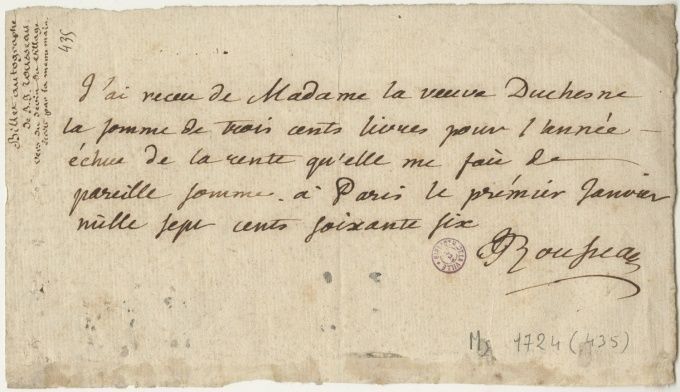 Billet autographe
de J. J. Rousseau
vers du devin du village
écrit par la même main.
435
J'ai receu de Madame la veuve Duchesne
la somme de trois cents livres pour l'année
échue de la rente qu'elle me fait de
pareille somme. à Paris le prémier Janvier
mille sept cents soixante six
JJRousseau
Ms 1724 (435)